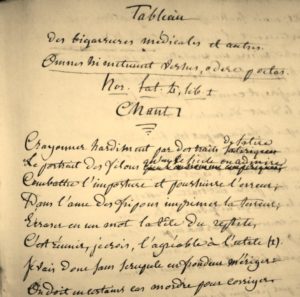 Tableau
des bigarrures medicales et autres.
Omnes hi metuunt versus, odere poetas.
Hor. Sat. 4, lib. 1
Chant 1
Crayonner hardiment par des traits de satire
Le portrait des filous qu'un siècle admire
Combattre l'imposture et poursuivre l'erreur,
Dans l'ame des fripons imprimer la terreur,
Ecraser en un mot la tête du reptile,
C'est réunir, je crois, l'agréable à l'utile (1).
Je vais donc sans scrupule en frondeur m'ériger
On doit en certains cas mordre pour corriger